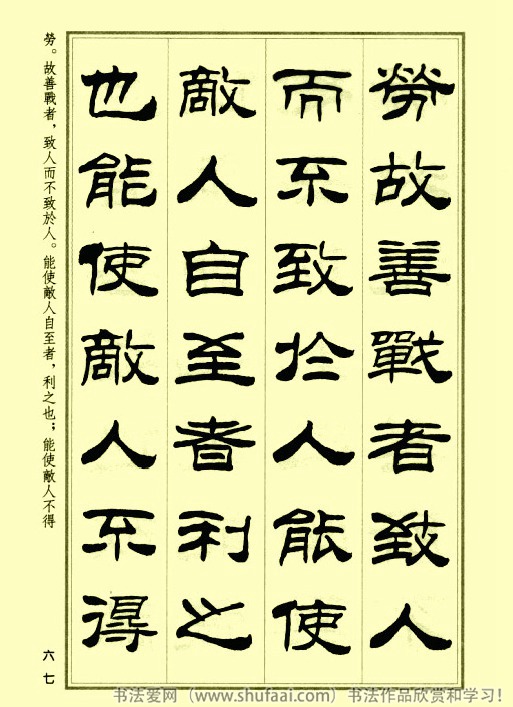 勞故善戰者致人
而不致於人能使
敵人自至者利之
也能使敵人不得
勞。故善戰者，致人而不致於人。能使敵人自至者，利之也；能使敵人不得
六七
书法爱网（www.shufaai.com）书法作品欣赏和学习！